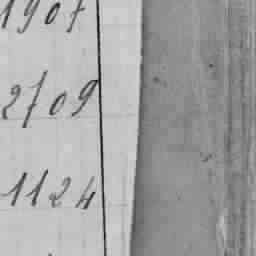 1907
2709
1124